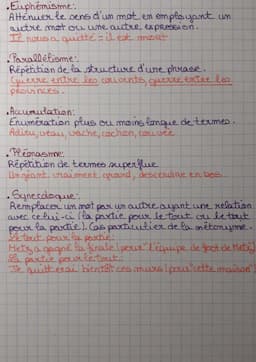 . Euphémisme :
Atténuer le sens d'un mot en employant un
autre mot ou une autre expression.
Il nous a quitté = il est mort
. Parallélisme :
Répétition de la structure d'une phrase.
Guerre entre les couvents, guerre entre les
provinces.
. Accumulation :
Enumération plus ou moins longue de termes.
Adieu, veau, vache, cochon, couvée
. Pléonasme :
Répétition de termes superflue
Un géant vraiment grand, descendre en bas.
. Synecdoque :
Remplacer un mot par un autre ayant une relation
avec celui-ci (la partie pour le tout ou le tout
pour la partie). Cas particulier de la métonymie.
Le tout pour la partie :
Metz a gagné la finale (pour "l'équipe de foot de Metz)
La partie pour le tout :
Je quitterai bientôt ces murs (pour "cette maison")